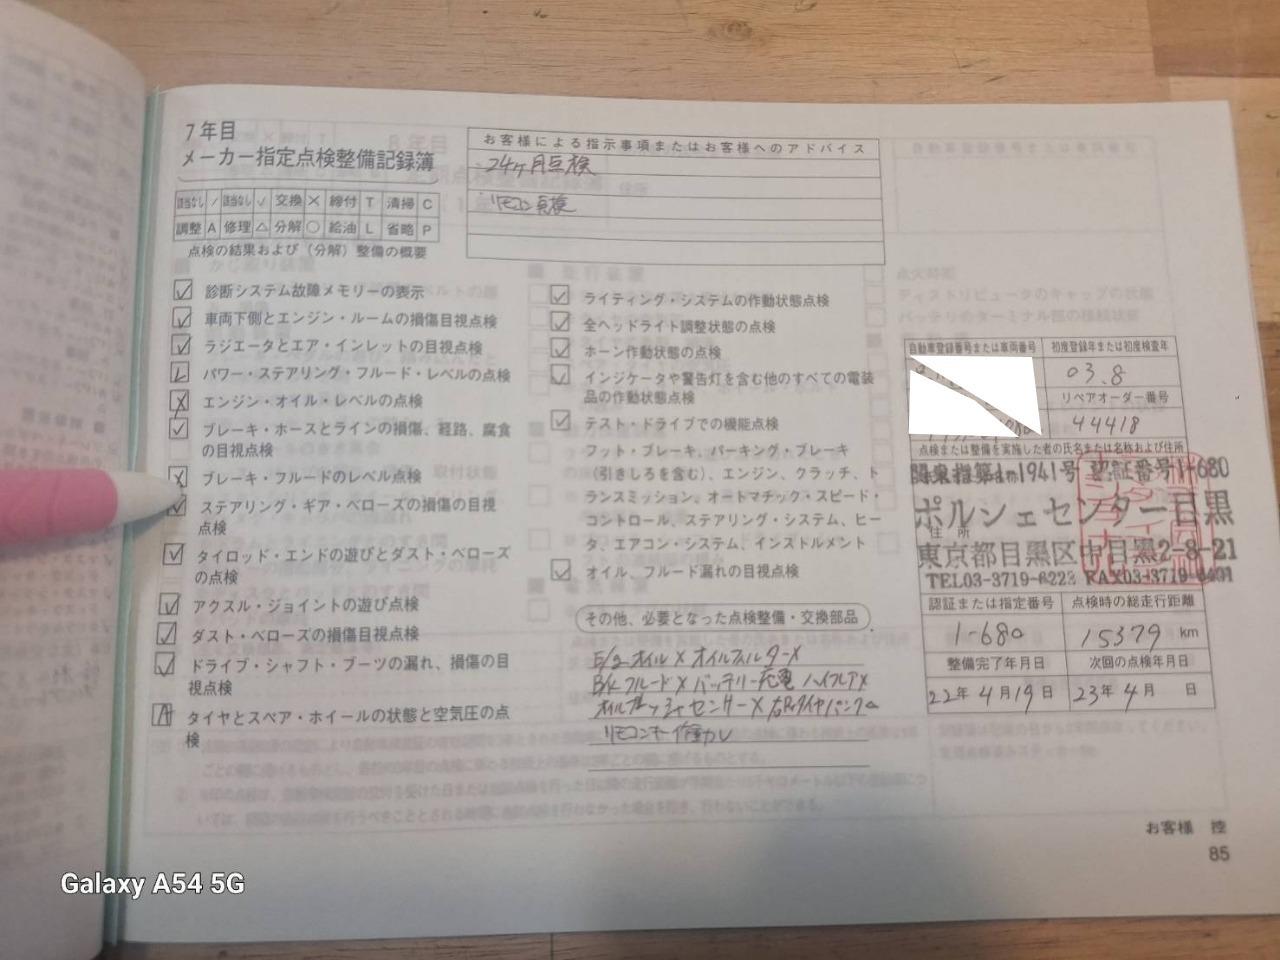 7年目
メーカー指定点検整備記録簿
該当なし / 該当なし ✓ 交換 × 締付 T 清掃 C
調整 A 修理 △ 分解 ○ 給油 L 省略 P
点検の結果および（分解）整備の概要
お客様による指示事項またはお客様へのアドバイス
・24ヶ月点検
・リモコン点検
診断システム故障メモリーの表示
車両下側とエンジン・ルームの損傷目視点検
ラジエータとエア・インレットの目視点検
パワー・ステアリング・フルード・レベルの点検
エンジン・オイル・レベルの点検
ブレーキ・ホースとラインの損傷、経路、腐食
の目視点検
ブレーキ・フルードのレベル点検
ステアリング・ギア・ベローズの損傷の目視
点検
タイロッド・エンドの遊びとダスト・ベローズ
の点検
アクスル・ジョイントの遊び点検
ダスト・ベローズの損傷目視点検
ドライブ・シャフト・ブーツの漏れ、損傷の目
視点検
タイヤとスペア・ホイールの状態と空気圧の点
検
ライティング・システムの作動状態点検
全ヘッドライト調整状態の点検
ホーン作動状態の点検
インジケータや警告灯を含む他のすべての電装
品の作動状態点検
テスト・ドライブでの機能点検
フット・ブレーキ、パーキング・ブレーキ
（引きしろを含む）、エンジン、クラッチ、ト
ランスミッション、オートマチック・スピード・
コントロール、ステアリング・システム、ヒー
タ、エアコン・システム、インストルメント
オイル、フルード漏れの目視点検
その他、必要となった点検整備・交換部品
E/gオイル× オイルフィルター×
B/kフルード× バッテリー充電
センサー×
リモコンキー作動
自動車登録番号または車両番号 初度登録年または初度検査年
03.8
リペアオーダー番号
44418
点検または整備を実施した者の氏名または名称および住所
関東指第1-1941号 認証番号1-680
ポルシェセンター目黒
住所
東京都目黒区中目黒2-8-21
TEL03-3719-6223 FAX03-3719-6401
認証または指定番号 点検時の総走行距離
1-680 15379 km
整備完了年月日 次回の点検年月日
22年 4月 19日 23年 4月 日
お客様 控
85
Galaxy A54 5G